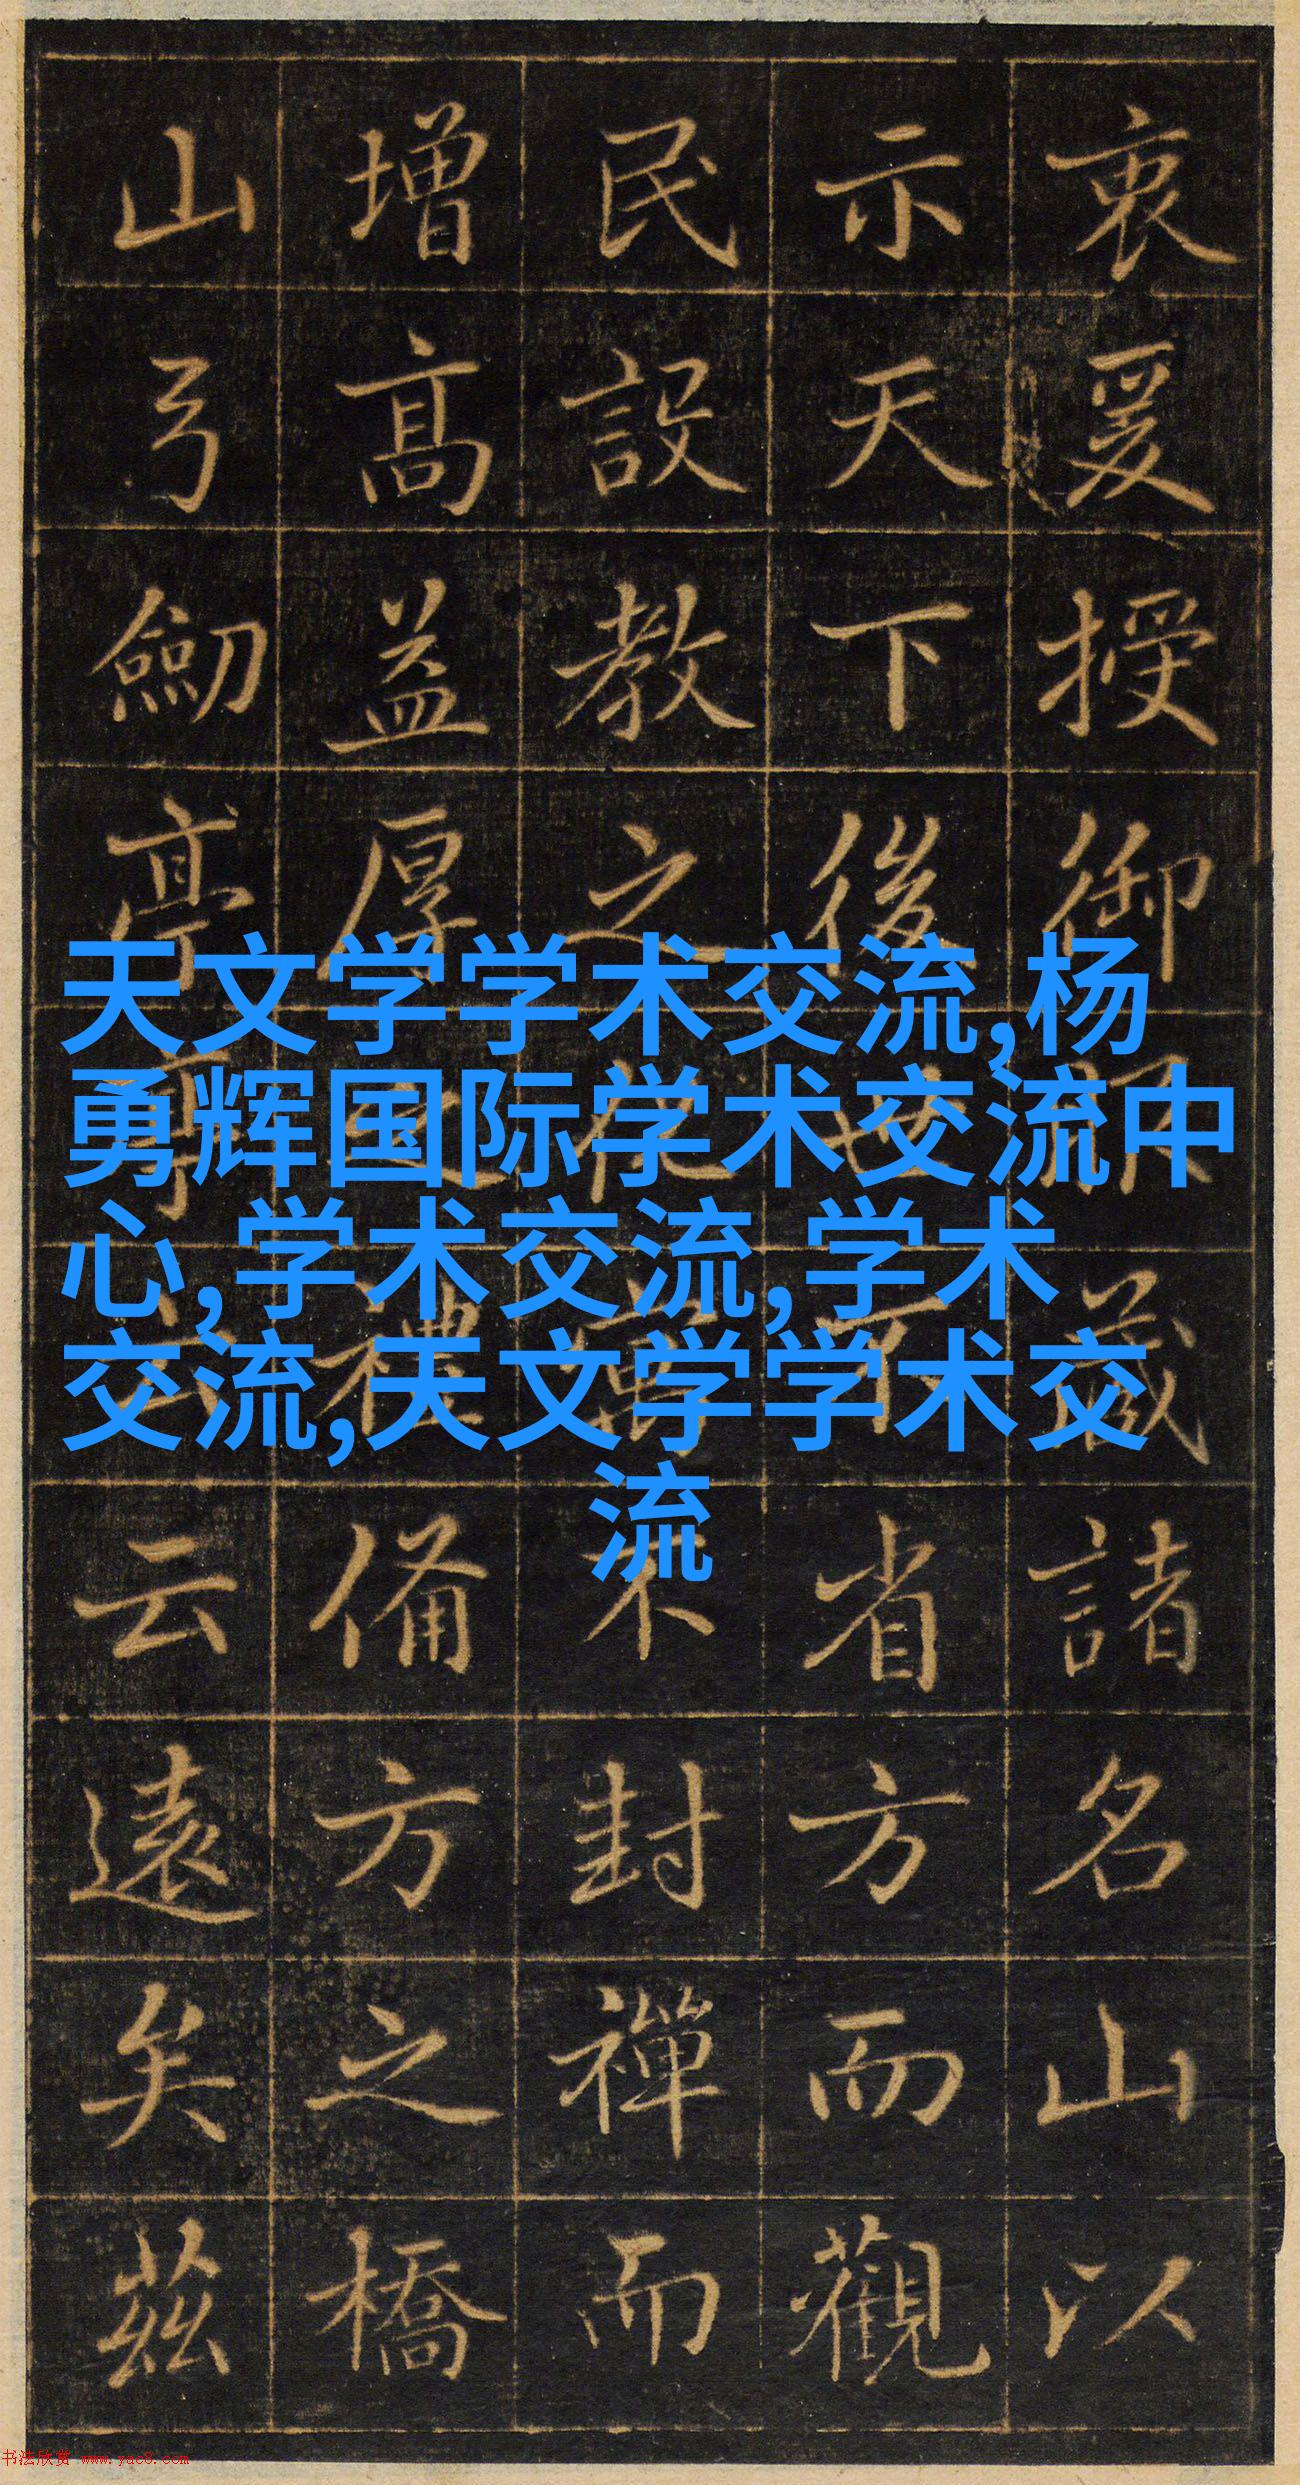 衷爰授御藏諸名山以
示天下後世省方而觀
民設教之不封禪而
增高益厚之禮備方之橋
山弓劒亭亭云云遠矣茲
天文学学术交流,杨
勇辉国际学术交流中
心,学术交流,学术
交流,天文学学术交
流
书法欣赏 www.yac8.com